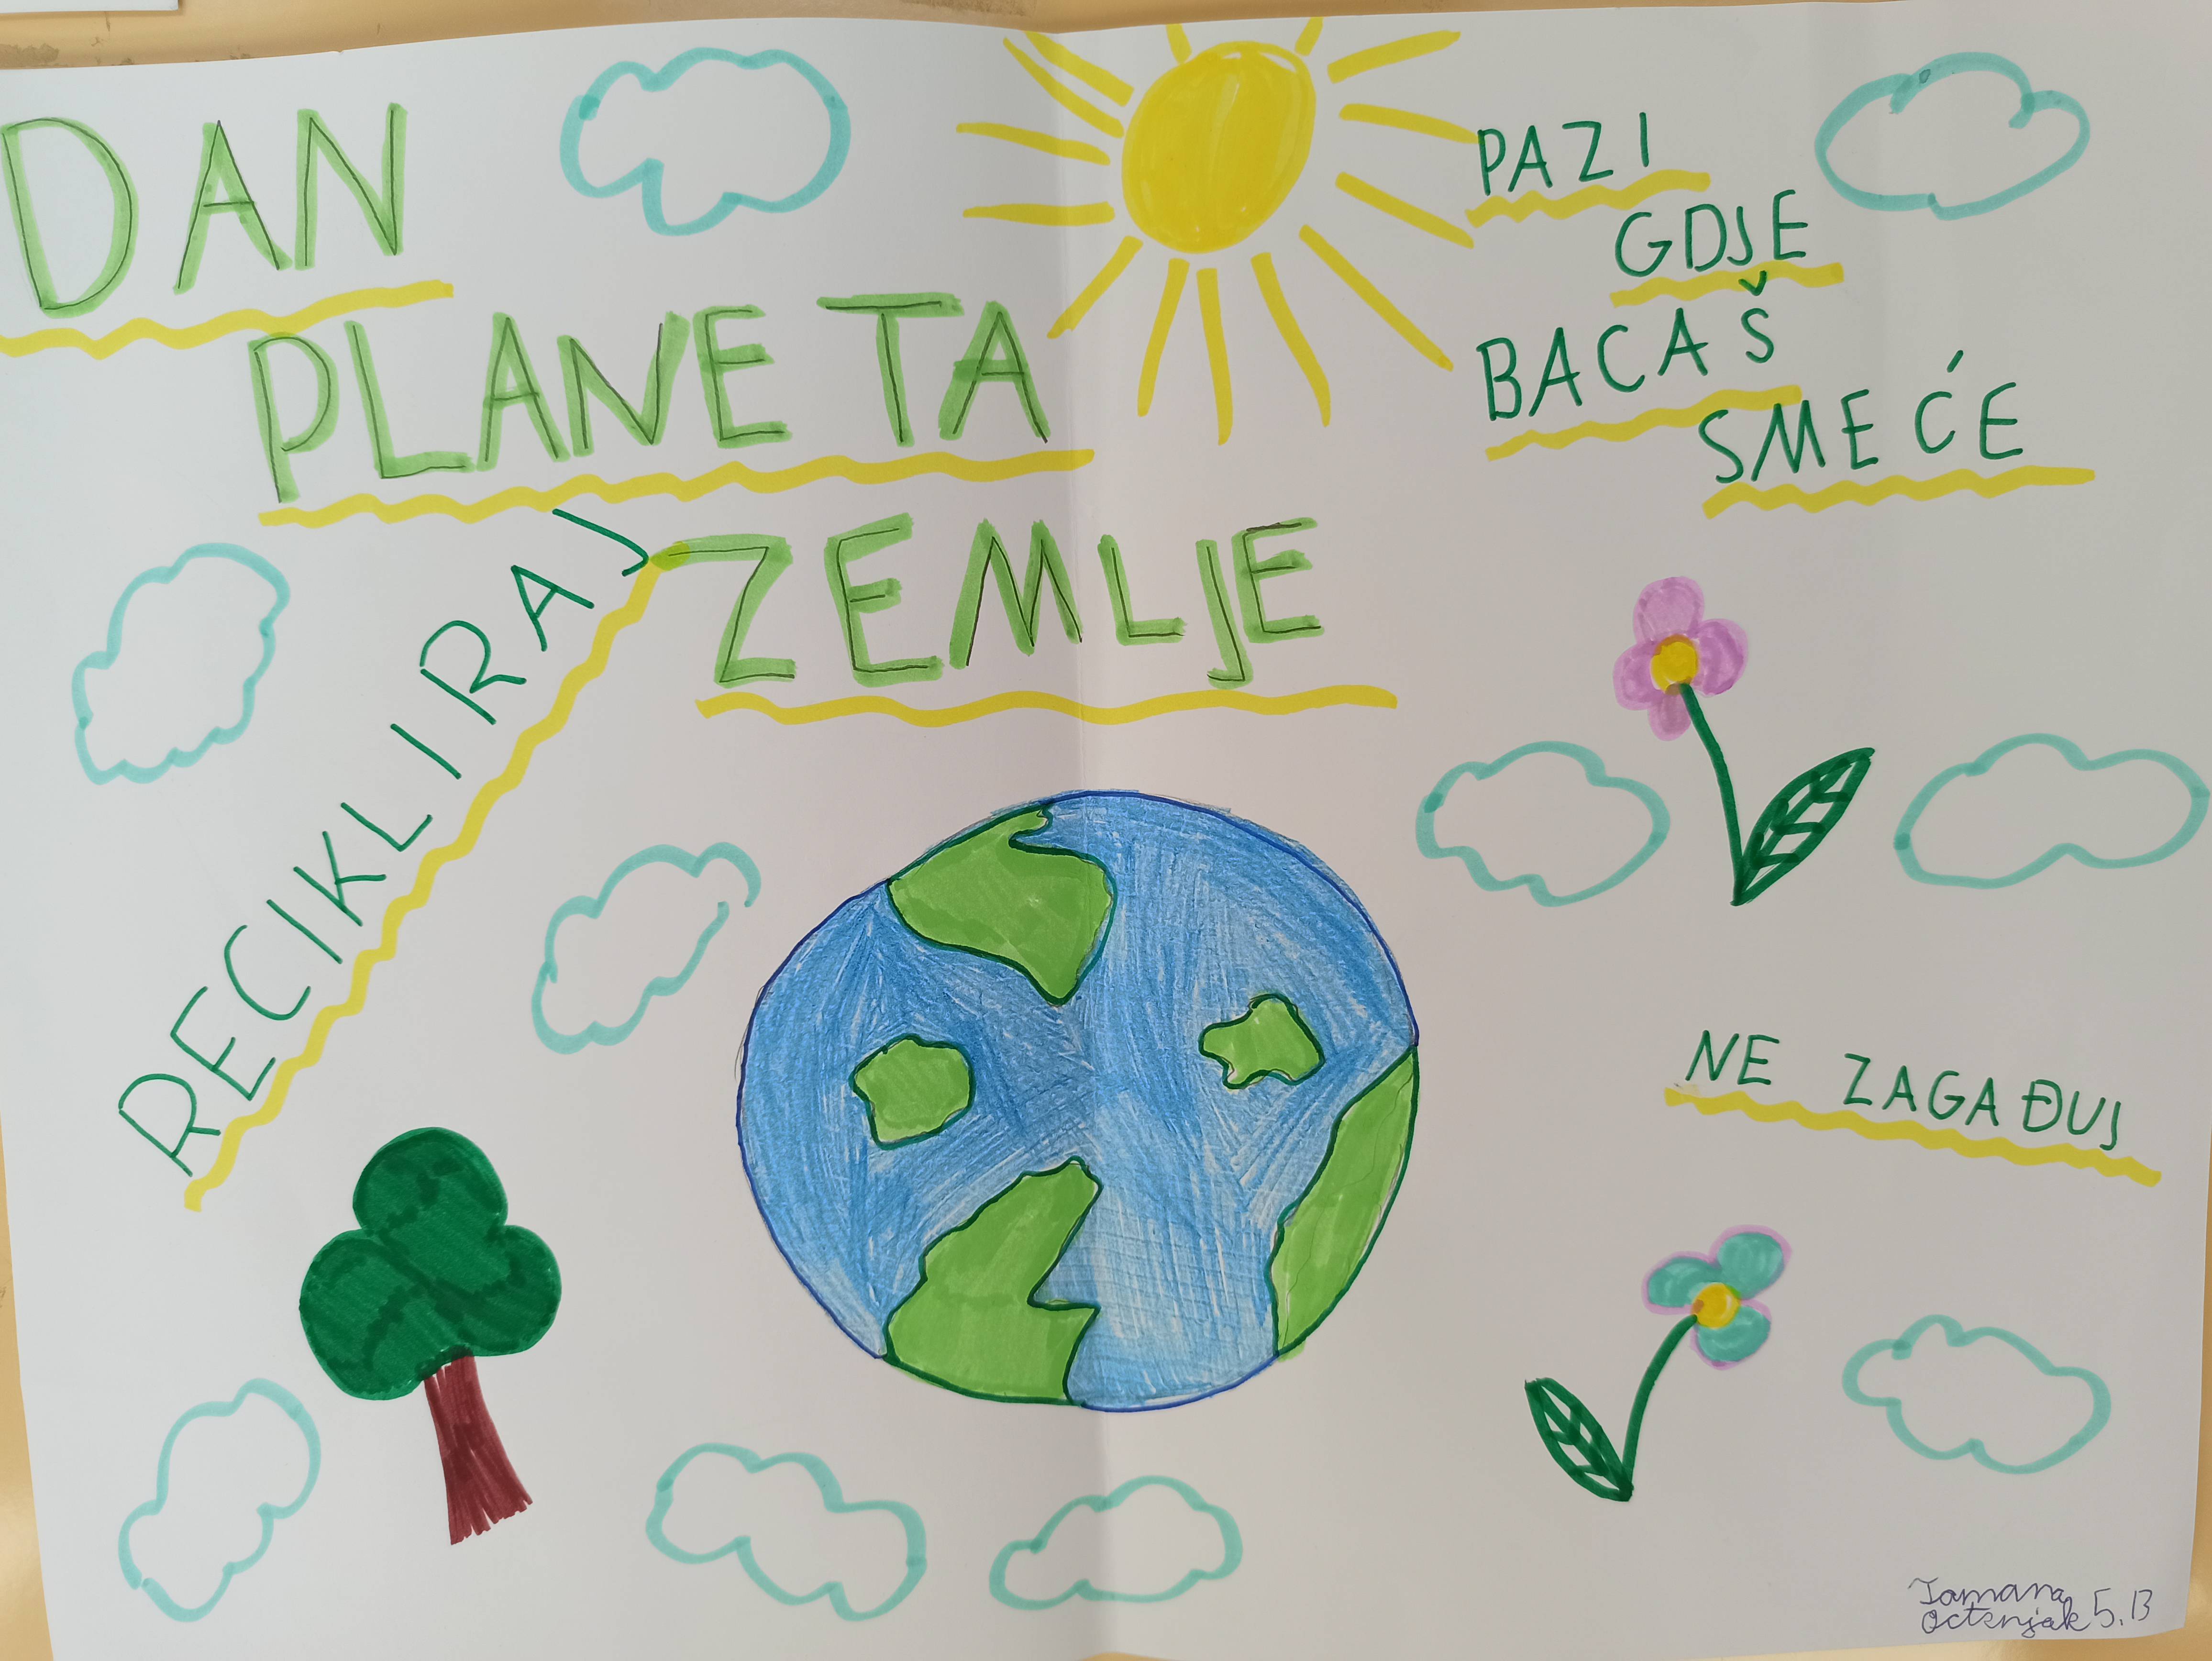 DAN
PLANETA
ZEMLJE
PAZI
GDJE
BACAŠ
SMEĆE
RECIKLIRAJ
NE ZAGAĐUJ
5.B